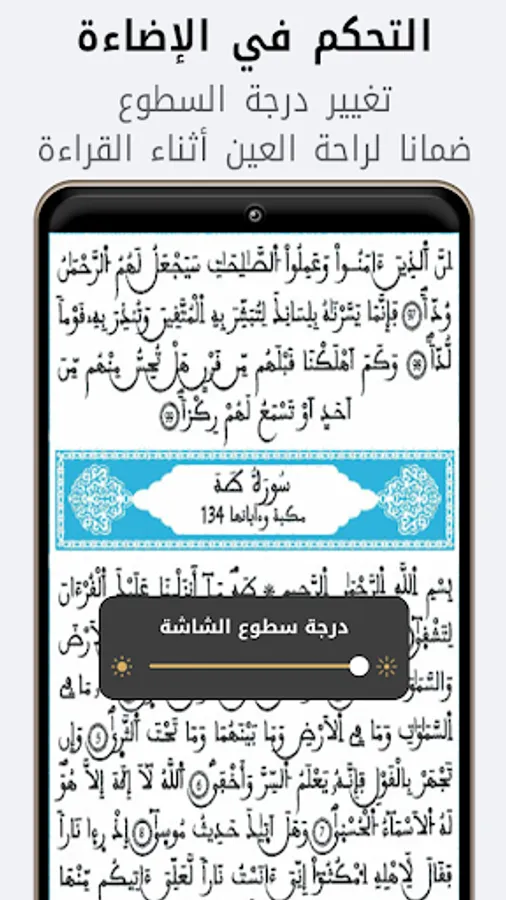 التحكم في الإضاءة
تغيير درجة السطوع
ضمانا لراحة العين أثناء القراءة
إنَّ ٱلذِينَ ءَامَنُوا۟ وَعَمِلُوا۟ ٱلصَّٰلِحَٰتِ سَيَجْعَلُ لَهُمُ ٱلرَّحْمَٰنُ
وُدّاً 97 فَإِنَّمَا يَسَّرْنَٰهُ بِلِسَانِكَ لِتُبَشِّرَ بِهِ ٱلْمُتَّقِينَ وَتُنذِرَ بِهِۦ قَوْماً
لُّدّاً 98 وَكَمَ اَهْلَكْنَا قَبْلَهُم مِّن قَرْنٍ هَلْ تُحِسُّ مِنْهُم مِّنَ
اَحَدٍ اَوْ تَسْمَعُ لَهُمْ رِكْزاً 99
سُورَةُ طَهَ
مكية وءاياتها 134
بِسْمِ ٱللَّهِ ٱلرَّحْمَٰنِ ٱلرَّحِيمِ * طَهَ مَآ أَنزَلْنَا عَلَيْكَ ٱلْقُرْءَانَ
لِتَشْقَىٰٓ
درجة سطوع الشاشة
ٱلسَّمَٰوَٰتِ وَمَا فِے اِ۬لَارْضِ وَمَا بَيْنَهُمَا وَمَا تَحْتَ ٱلثَّرَىٰ 5 وَإِن
تَجْهَرْ بِالْقَوْلِ فَإِنَّهُۥ يَعْلَمُ ٱلسِّرَّ وَأَخْفَى 6 ٱللَّهُ لَآ إِلَٰهَ إِلَّا هُوَ
لَهُ ٱلَاسْمَآءُ ٱلْحُسْنَىٰ 7 وَهَلَ اَتَىٰكَ حَدِيثُ مُوسَىٰٓ 8 إِذْ رَءَا نَاراً
فَقَالَ لِأَهْلِهِ ٱمْكُثُوٓا۟ إِنِّيَ ءَانَسْتُ نَاراً لَّعَلِّيَ ءَاتِيكُم مِّنْهَا